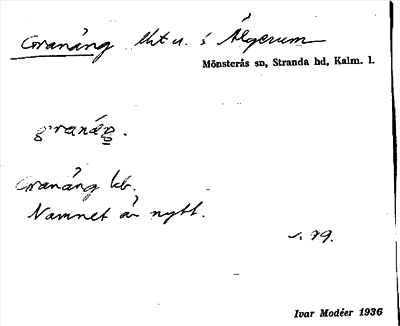 Granäng lht u. i Älgerum
Mönsterås sn, Stranda hd, Kalm. l.
granäng.
Granäng kb.
Namnet är nytt.
s. 79.
Ivar Modéer 1936